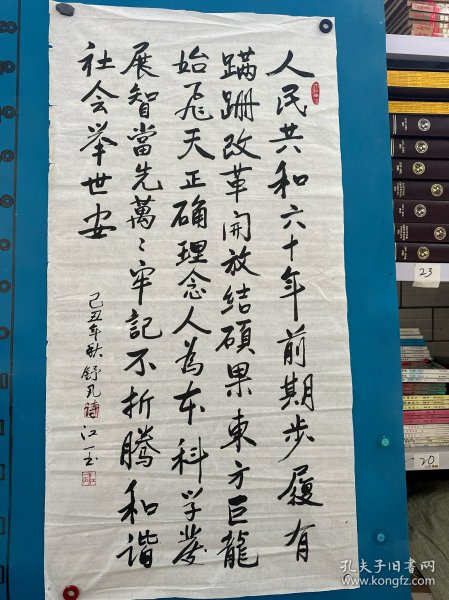 人民共和六十年前期步履有
蹒跚改革開放结碩果東方巨龍
始飛天正确理念人為本科学發
展智當先萬〻牢記不折騰和谐
社会举世安
己丑年秋舒凡詩江一玉
23
20
孔夫子旧书网
www.kongfz.com